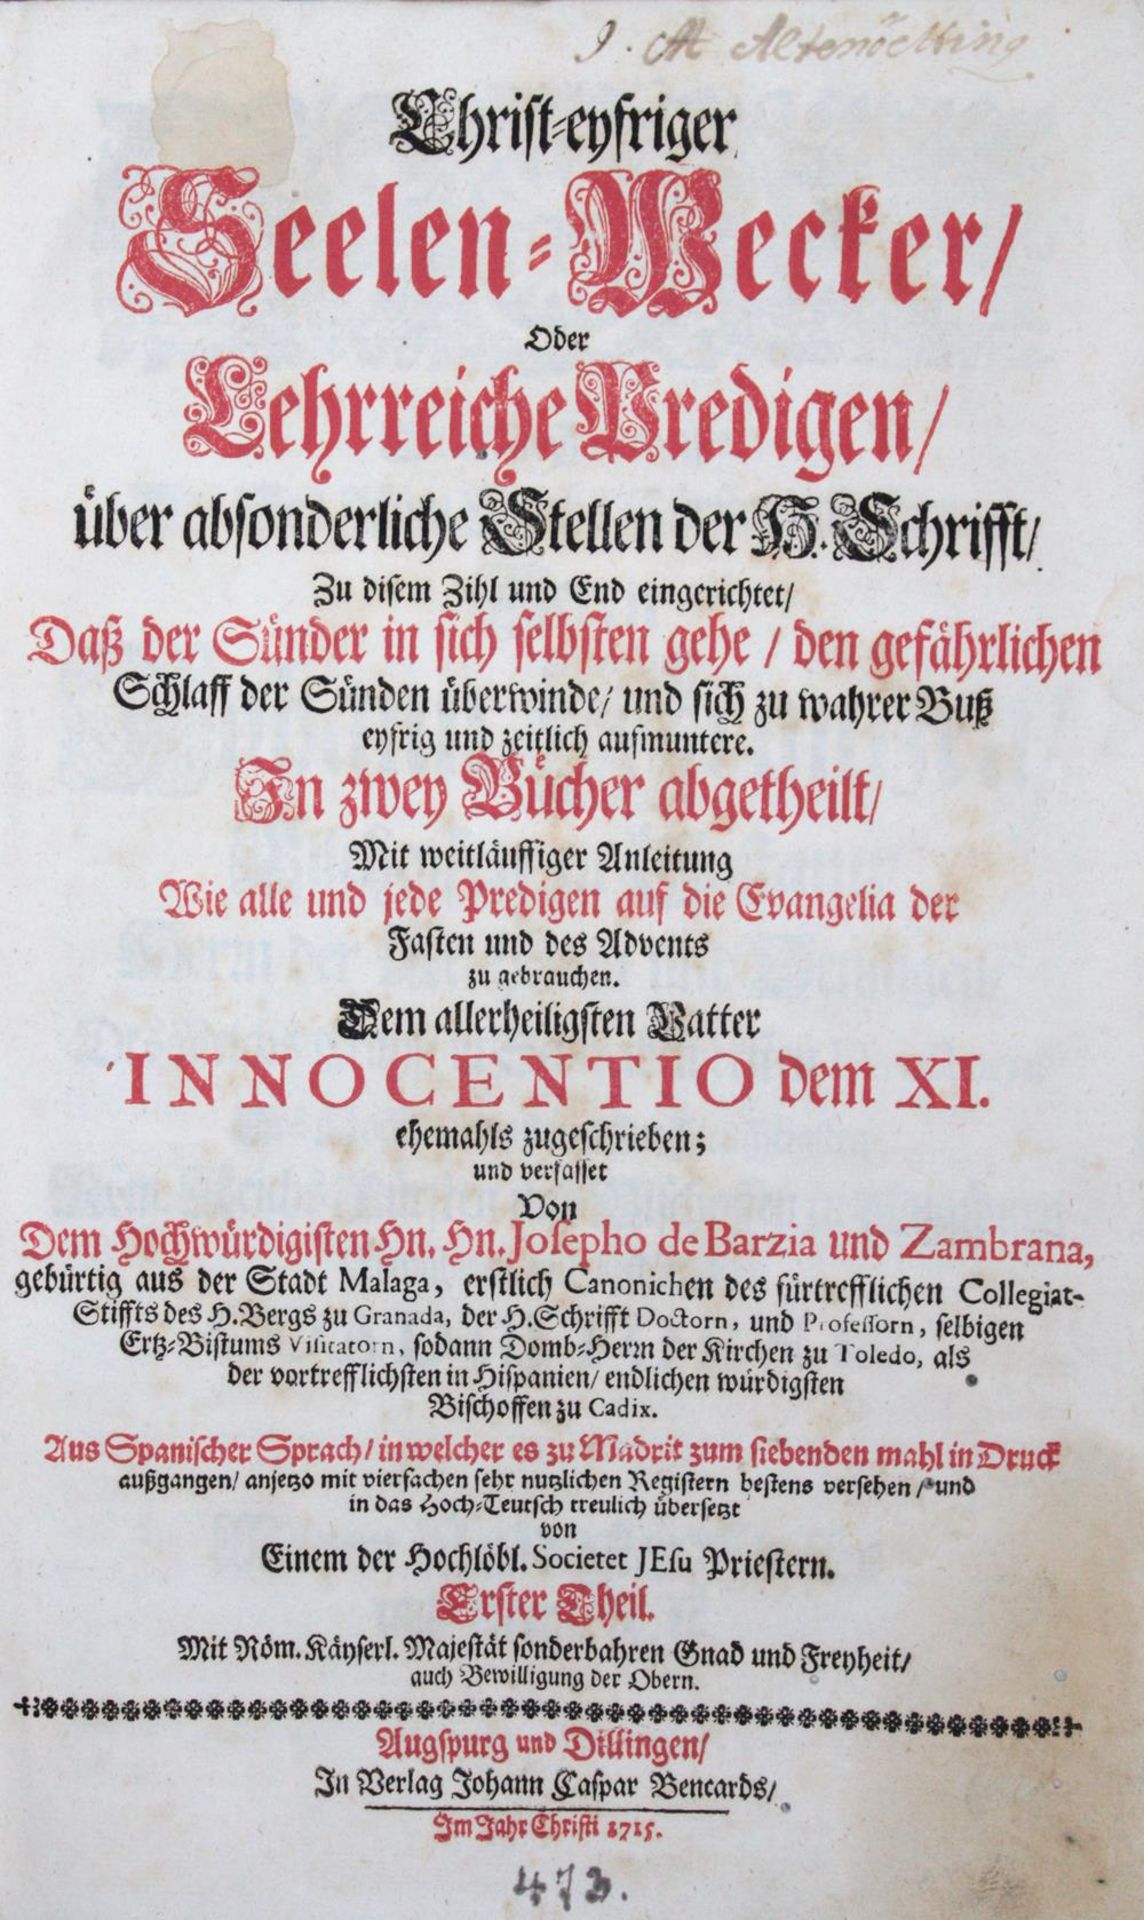 Altenötting
Christ-eyfriger
Seelen-Wecker/
Oder
Lehrreiche Predigen/
über absonderliche Stellen der H. Schrifft/
Zu disem Zihl und End eingerichtet/
Daß der Sünder in sich selbsten gehe / den gefährlichen
Schlaff der Sünden überwinde/ und sich zu wahrer Buß
eyfrig und zeitlich aufmuntere.
In zwey Bücher abgetheilt/
Mit weitläuffiger Anleitung
Wie alle und jede Predigen auf die Evangelia der
Fasten und des Advents
zu gebrauchen.
Dem allerheiligsten Vatter
INNOCENTIO dem XI.
ehemahls zugeschrieben;
und verfasset
Von
Dem Hochwürdigisten Hn. Hn. Josepho de Barzia und Zambrana,
gebürtig aus der Stadt Malaga, erstlich Canonichen des fürtrefflichen Collegiat-
Stiffts des H. Bergs zu Granada, der H. Schrifft Doctorn, und Professorn, selbigen
Ertz-Bistums Visitatorn, sodann Domb-Herrn der Kirchen zu Toledo, als
der vortrefflichsten in Hispanien/ endlichen würdigsten
Bischoffen zu Cadix.
Aus Spanischer Sprach/ in welcher es zu Madrit zum siebenden mahl in Druck
außgangen/ anjetzo mit vierfachen sehr nutzlichen Registern bestens versehen/ und
in das Hoch-Teutsch treulich übersetzt
von
Einem der Hochlöbl. Societet JEsu Priestern.
Erster Theil.
Mit Röm. Käyserl. Majestät sonderbahren Gnad und Freyheit/
auch Bewilligung der Obern.
Augspurg und Dillingen/
In Verlag Johann Caspar Bencards/
Im Jahr Christi 1715.
473.